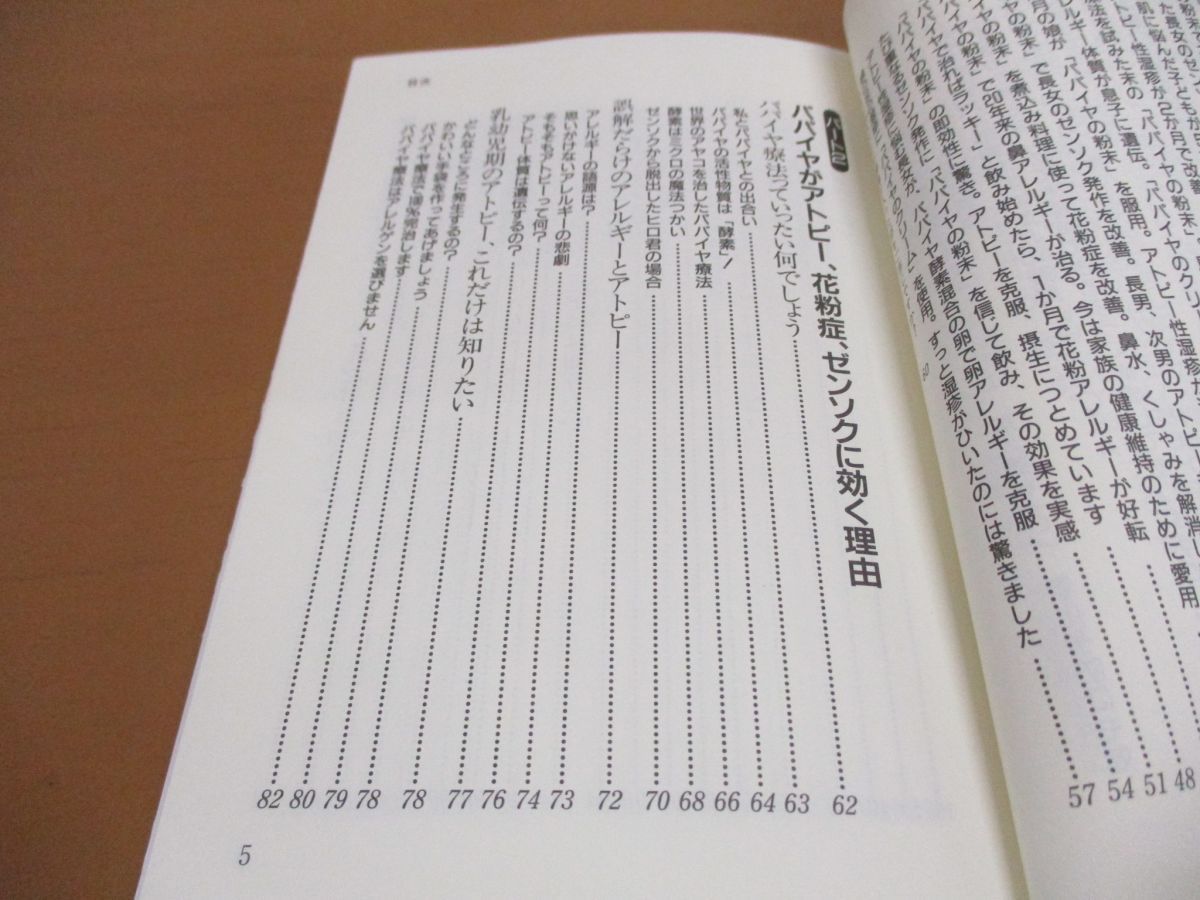 粉末
長女のゼン
肌に悩んだ子どもが
トピー性湿疹が2か月で改
療法を試みた末の「パパイヤのクリー
ルギー体質が息子に遺伝。「パパイヤの粉末」を服用。アトピー性湿疹
月の娘が「パパイヤの粉末」で長女のゼンソク発作を改善。長男、次男のアトピー
を煮込み料理に使って花粉症を改善。鼻水、くしゃみを解消
イヤの粉末」で20年来の鼻アレルギーが治る。今は家族の健康維持のために愛用 48
パパイヤで治ればラッキー」と飲み始めたら、1か月で花粉アレルギーが好転 51
の即効性に驚き。アトピーを克服、摂生につとめています 54
ゼンソク発作に「パパイヤの粉末」を信じて飲み、その効果を実感 57
パパイヤ酵素混合の卵で卵アレルギーを克服
を使用。すっと湿疹がひいたのには驚きました
60
目次
パート2
パパイヤがアトピー、花粉症、ゼンソクに効く理由
パパイヤ療法っていったい何でしょう 62
私とパパイヤとの出合い 63
パパイヤの活性物質は「酵素」! 64
世界のアヤコを治したパパイヤ療法 66
酵素はミクロの魔法つかい 68
ゼンソクから脱出したヒロ君の場合 70
誤解だらけのアレルギーとアトピー 72
アレルギーの語源は? 73
思いがけないアレルギーの悲劇 74
そもそもアトピーって何? 76
アトピー体質は遺伝するの? 77
乳幼児期のアトピー、これだけは知りたい 78
どんなところに発生するの? 78
かわいい手袋を作ってあげましょう 79
パパイヤ療法で完治します 80
パパイヤ療法はアレルゲンを選びません 82
5